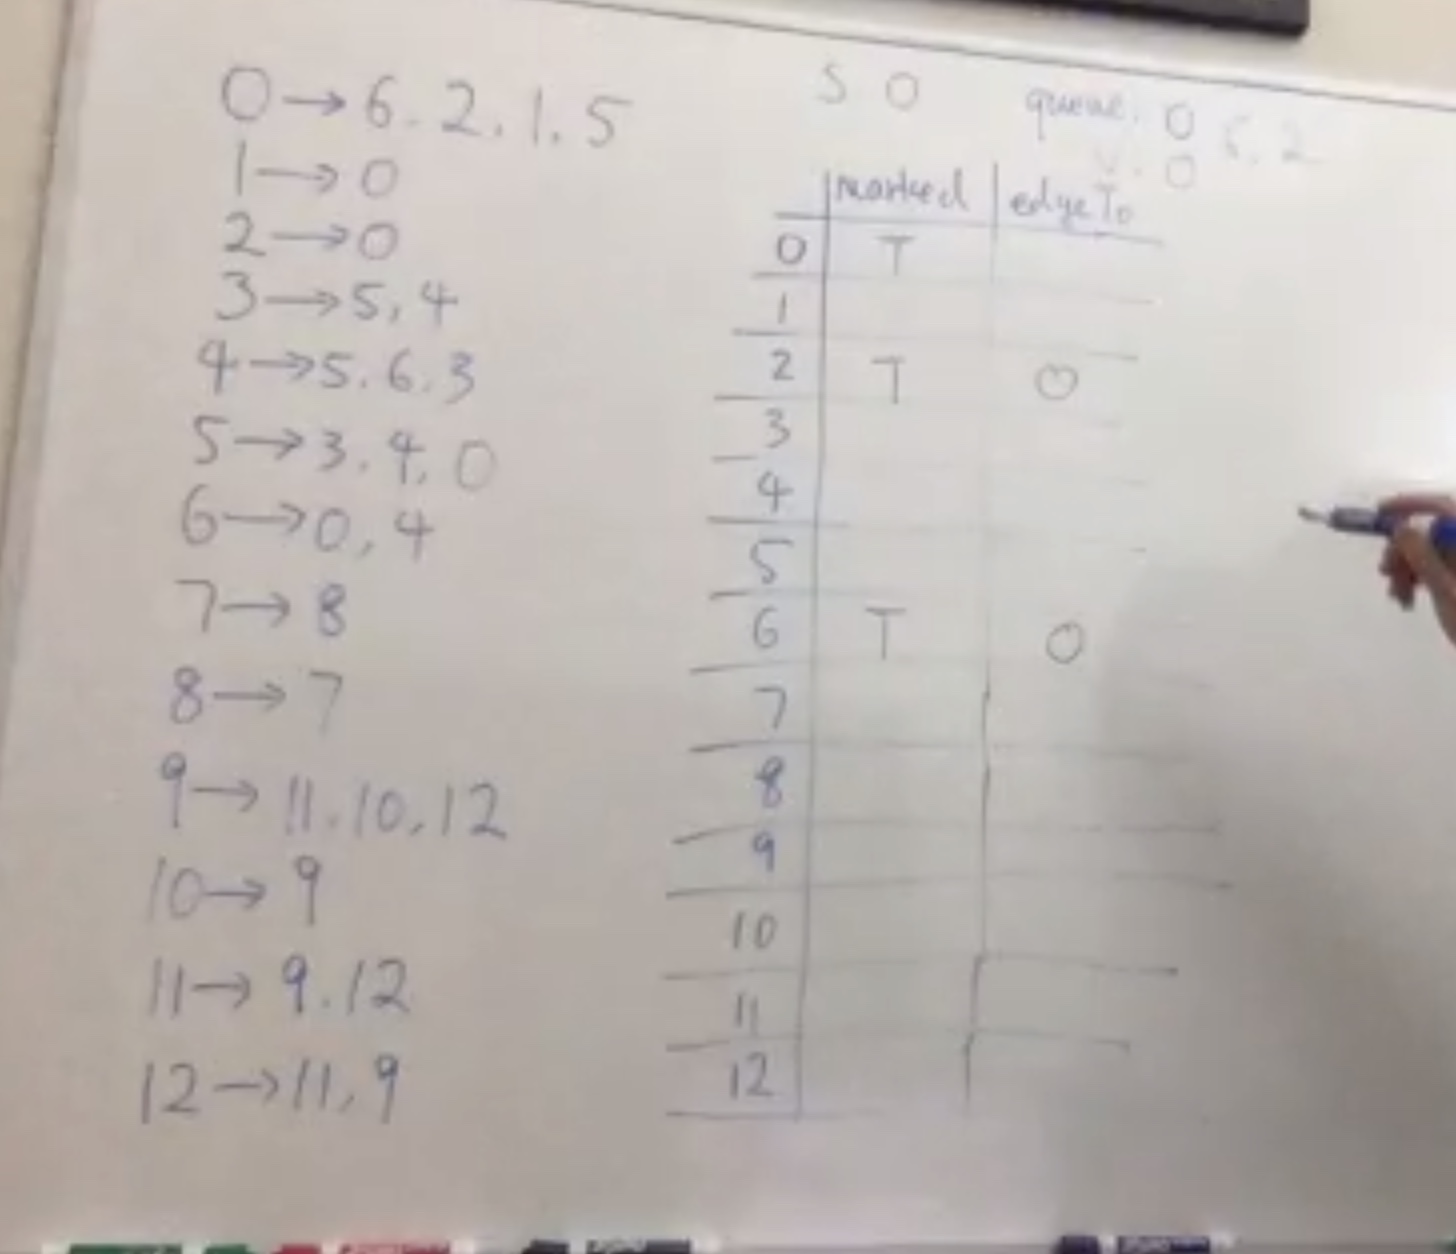 0→6.2.1.5
1→0
2→0
3→5,4
4→5.6.3
5→3.4.0
6→0,4
7→8
8→7
9→11.10.12
10→9
11→9.12
12→11,9
S 0
queue: 0 6.2
v: 0
marked edgeTo
0 T
1
2 T 0
3
4
5
6 T 0
7
8
9
10
11
12